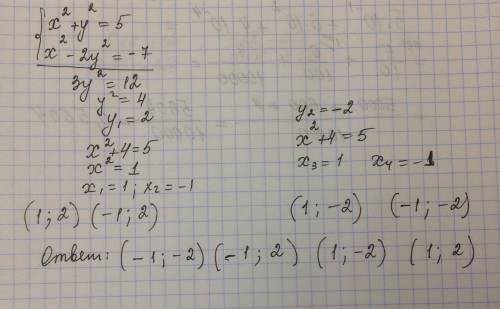 {x² + y² = 5
x² - 2y² = -7
3y² = 12
y² = 4
y₁ = 2
x² + 4 = 5
x² = 1
x₁ = 1; x₂ = -1
(1; 2) (-1; 2)
y₂ = -2
x² + 4 = 5
x₃ = 1 x₄ = -1
(1; -2) (-1; -2)
Ответ: (-1; -2) (-1; 2) (1; -2) (1; 2)